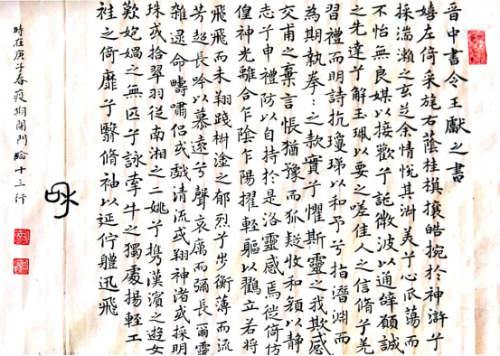 晉中書令王獻之書
嬉左倚采旄右蔭桂旗攘皓捥於神滸兮
採湍瀨之玄芝余情悅其淑美兮心振蕩而
不怡無良媒以接歡兮託微波以通辭願誠
之先達兮解玉珮以要之嗟佳人之信脩兮羌
習禮而明詩抗瓊珶以和予兮指潛淵而
為期執拳〻之款實兮懼斯靈之我欺感
交甫之棄言悵猶豫而狐疑收和顏以静
志兮申禮防以自持於是洛靈感焉徙倚仿
偟神光離合乍陰乍陽擢輕軀以鶴立若將
飛飛而未翔踐椒塗之郁烈兮步衡薄而流
芳超長吟以慕遠兮聲哀厲而彌長爾靈
雜遝命疇嘯侶或戲清流或翔神渚或採明
珠或拾翠羽從南湘之二姚兮攜漢濱之遊女
歎妃媧之無匹兮詠牽牛之獨處揚輕工
袿之倚靡兮翳脩袖以延佇軆迅飛
時在庚子春疫期閉門臨十三行